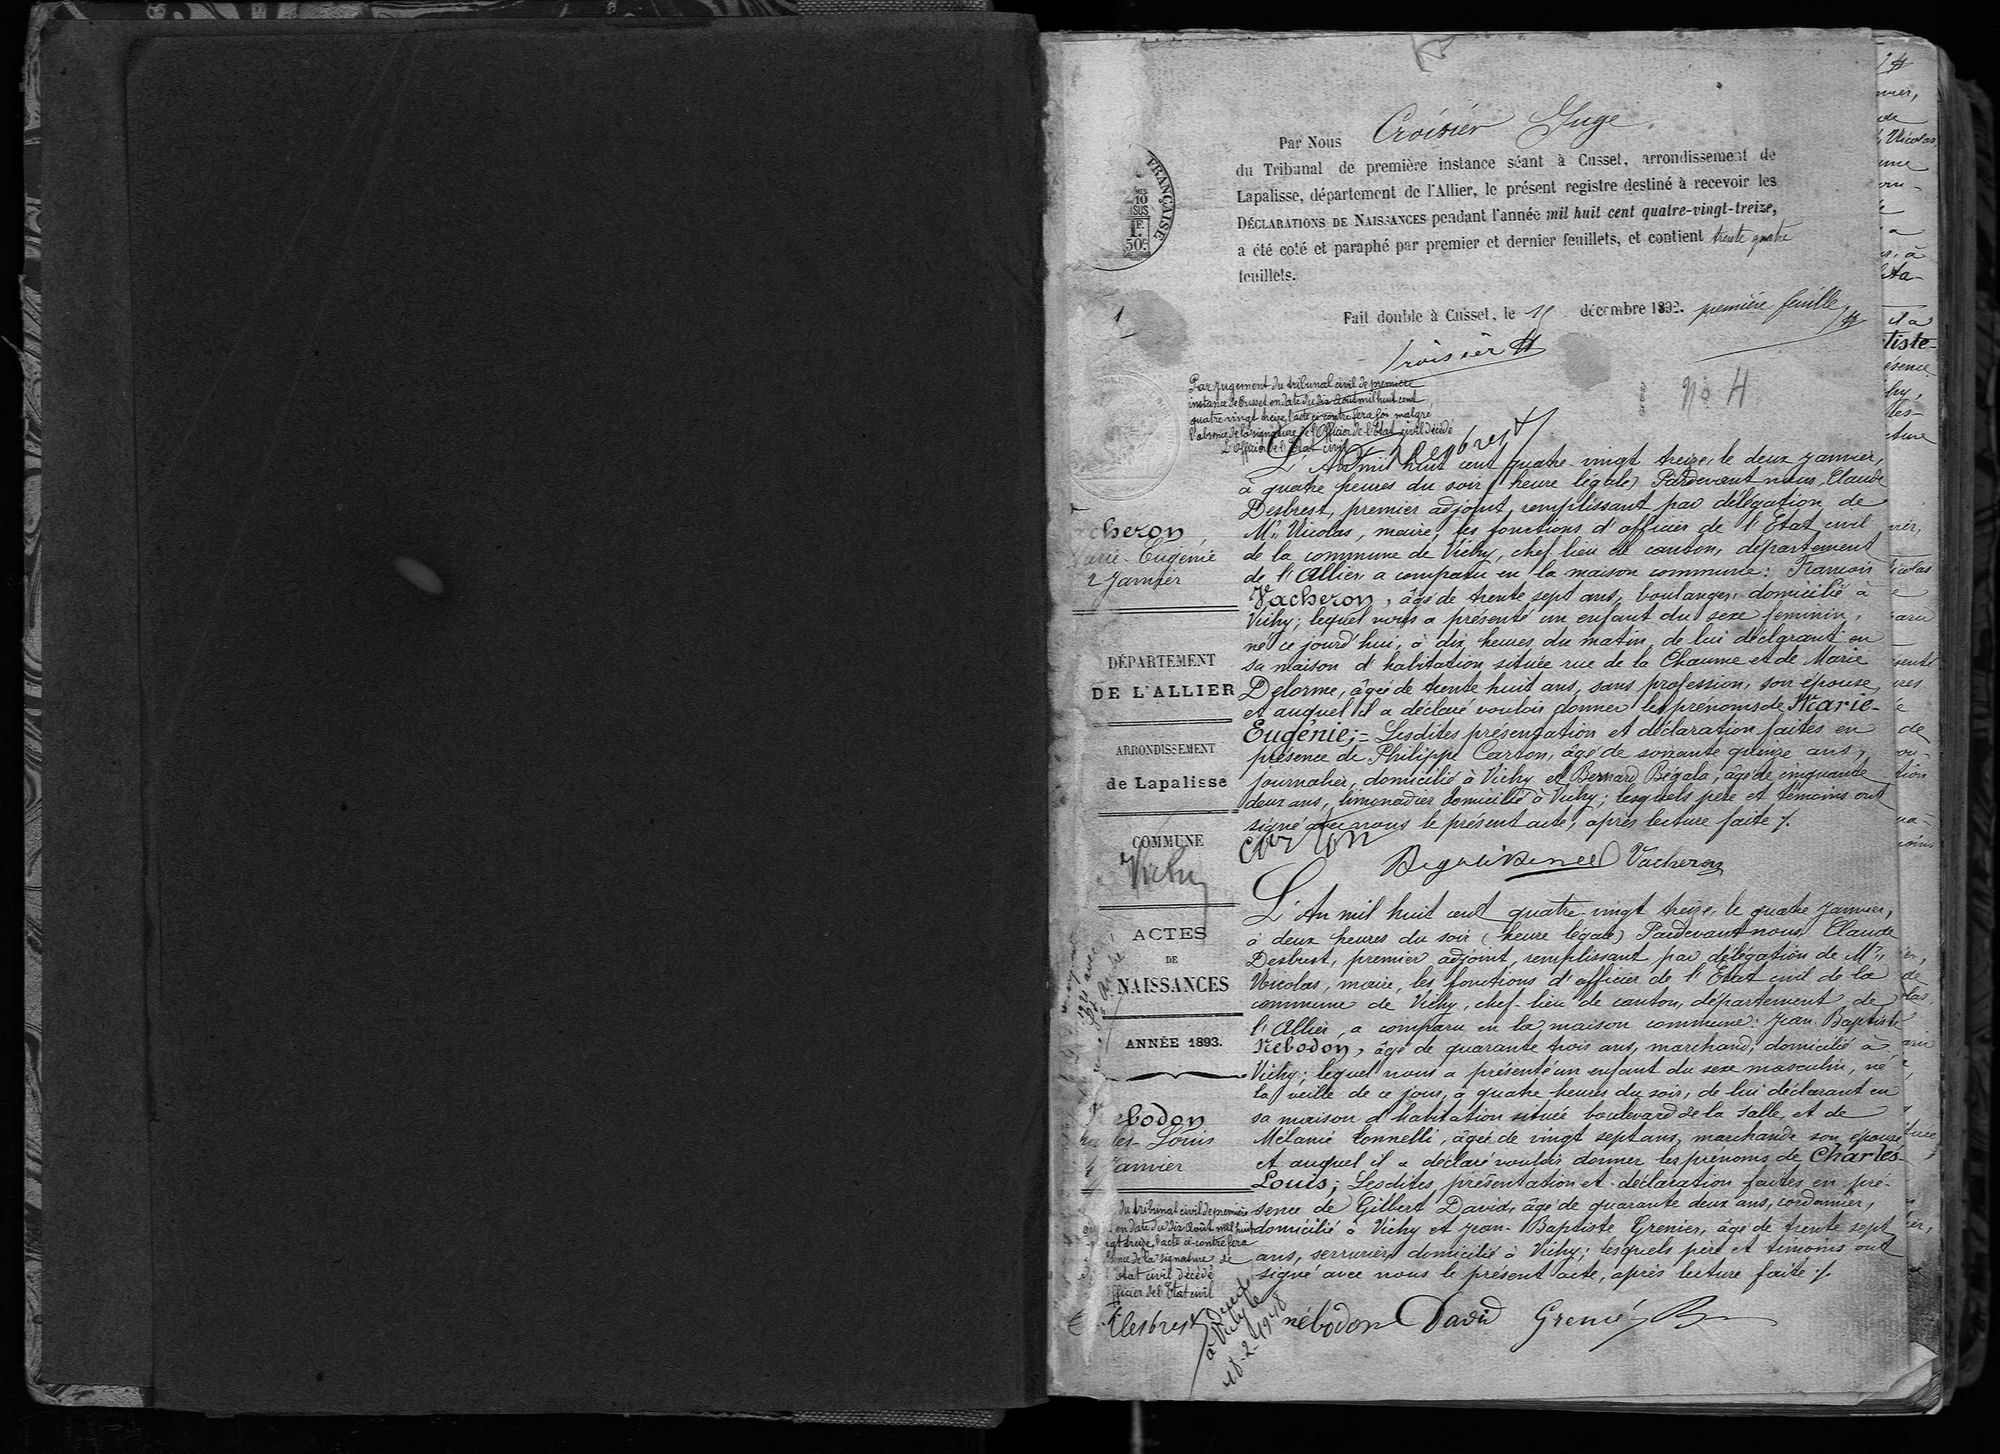 Par Nous Croisier Juge
du Tribunal de première instance séant à Cusset, arrondissement de
Lapalisse, département de l'Allier, le présent registre destiné à recevoir les
DÉCLARATIONS DE NAISSANCES pendant l'année mil huit cent quatre-vingt-treize,
a été coté et paraphé par premier et dernier feuillets, et contient trente quatre
feuillets.
Fait double à Cusset, le 15 décembre 1892. première feuille
FRANÇAISE
10
SUS
1F
50c
1
Croisier
No 4
Par jugement du tribunal civil de première
instance de Cusset en date du dix Août mil huit cent
quatre vingt treize l'acte ci contre fera foi malgré
l'absence de la signature de l'Officier de l'Etat civil décédé
L'Officier de l'Etat civil
Desbrest
L'An mil huit cent quatre-vingt treize, le deux janvier,
à quatre heures du soir (heure légale) Pardevant nous, Claude
Desbrest, premier adjoint, remplissant par délégation de
Mr. Nicolas, maire, les fonctions d'officier de l'Etat civil
de la commune de Vichy, chef lieu de canton, département
de l'Allier a comparu en la maison commune: François
Vacheron, âgé de trente sept ans, boulanger, domicilié à
Vichy; lequel nous a présenté un enfant du sexe feminin,
né ce jourd'hui, à dix heures du matin, de lui déclarant en
sa maison d'habitation située rue de la Chaume et de Marie
Delorme, âgée de trente huit ans, sans profession, son épouse,
et auquel il a déclaré vouloir donner les prénoms de Marie-
Eugénie;= Lesdites présentation et déclaration faites en
présence de Philippe Carton, âgé de soixante quinze ans,
journalier, domicilié à Vichy et Bernard Bégala, âgé de cinquante
deux ans, limonadier domicilié à Vichy; lesquels père et témoins ont
signé avec nous le présent acte, après lecture faite /.
carton
Vacheron
cheron
Marie-Eugénie
2 Janvier
DÉPARTEMENT
DE L'ALLIER
ARRONDISSEMENT
de Lapalisse
COMMUNE
Vichy
ACTES
DE
NAISSANCES
ANNÉE 1893.
L'An mil huit cent quatre-vingt treize, le quatre janvier,
à deux heures du soir (heure légale) Pardevant nous Claude
Desbrest, premier adjoint, remplissant par délégation de Mr.
Nicolas, maire, les fonctions d'officier de l'Etat civil de la
commune de Vichy, chef-lieu de canton, département de
l'Allier, a comparu en la maison commune: Jean Baptiste
Nebodon, âgé de quarante trois ans, marchand, domicilié à
Vichy; lequel nous a présenté un enfant du sexe masculin, né
la veille de ce jour, à quatre heures du soir, de lui déclarant en
sa maison d'habitation située boulevard de la Salle, et de
Mélanie Tonnelli, âgée de vingt sept ans, marchande son épouse
et auquel il a déclaré vouloir donner les prénoms de Charles
Louis; Lesdites présentation et déclaration faites en pré-
sence de Gilbert David, âgé de quarante deux ans, cordonnier,
domicilié à Vichy et Jean-Baptiste Grenier, âgé de trente sept
ans, serrurier domicilié à Vichy; lesquels père et témoins ont
signé avec nous le présent acte, après lecture faite /.
nébodon David Grenier
ebodon
les-Louis
4 Janvier
du tribunal civil de première
en date du dix Août mil huit
treize l'acte ci-contre fera
de la signature de
état civil décédé
officier de l'Etat civil
Desbrest
à Vichy le
18-2-1948